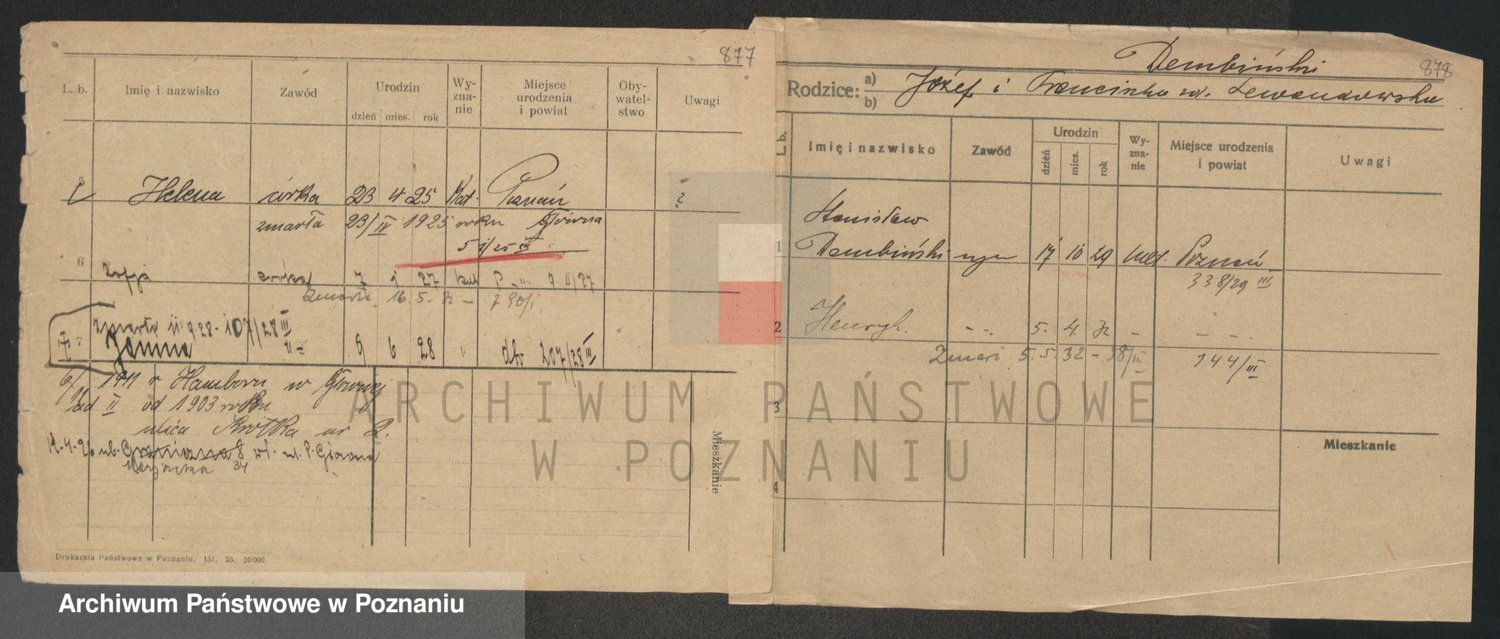 877
L. b. Imię i nazwisko Zawód Urodzin dzień mies. rok Wyzna-nie Miejsce urodzenia i powiat Oby-watel-stwo Uwagi
5 Helena córka 23 4 25 kat. Poznań
zmarła 23/IV 1925 roku Główna
6 Zofja córka 7 1 27 kat P
zmarła 16. 5. 
zmarła 107/28 III
7 Janina 9 6 28 207/28 III
1911 r Hamborn w Głównej
od II od 1903 roku
ulica Krótka nr 2.
19.4.26 ul. Graniczna 8 Główna
34
Mieszkanie
Drukarnia Państwowa w Poznaniu. 151. 25. 20000.
878
Dembiński
Rodzice: a) b) Józef i Franciszka zd. Lewandowska
L. b. Imię i nazwisko Zawód Urodzin dzień mies. rok Wy-zna-nie Miejsce urodzenia i powiat Uwagi
Stanisław
1 Dembiński syn 17 10 29 kat. Poznań
338/29 III
2 Henryk 5. 4.
5.5.32 144/III
3
4
Mieszkanie
ARCHIWUM PAŃSTWOWE
W POZNANIU
Archiwum Państwowe w Poznaniu